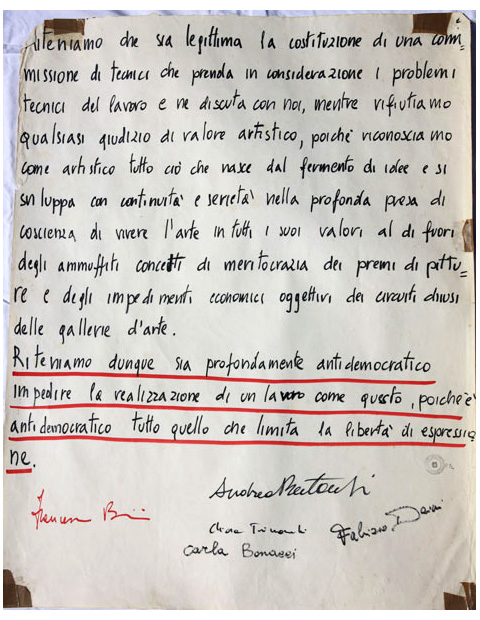 Riteniamo che sia legittima la costituzione di una com=
missione di tecnici che prenda in considerazione i problemi
tecnici del lavoro e ne discuta con noi, mentre rifiutiamo
qualsiasi giudizio di valore artistico, poichè riconosciamo
come artistico tutto ciò che nasce dal fermento di idee e si
sviluppa con continuità e serietà nella profonda presa di
coscienza di vivere l'arte in tutti i suoi valori al di fuori
degli ammuffiti concetti di meritocrazia dei premi di pittu=
re e degli impedimenti economici oggettivi dei circuiti chiusi
delle gallerie d'arte.
Riteniamo dunque sia profondamente antidemocratico
impedire la realizzazione di un lavoro come questo, poichè è
antidemocratico tutto quello che limita la libertà di espressio
ne.
Andrea
Carla Bonazzi
Fabrizio